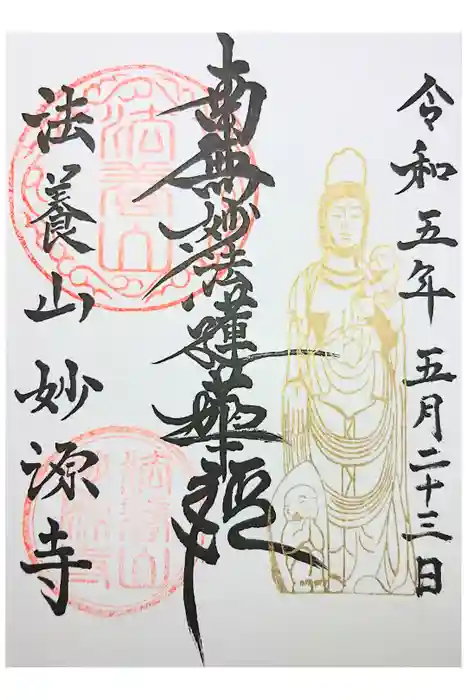 令和五年五月二十三日
南無妙法蓮華経
法養山妙源寺
法養山